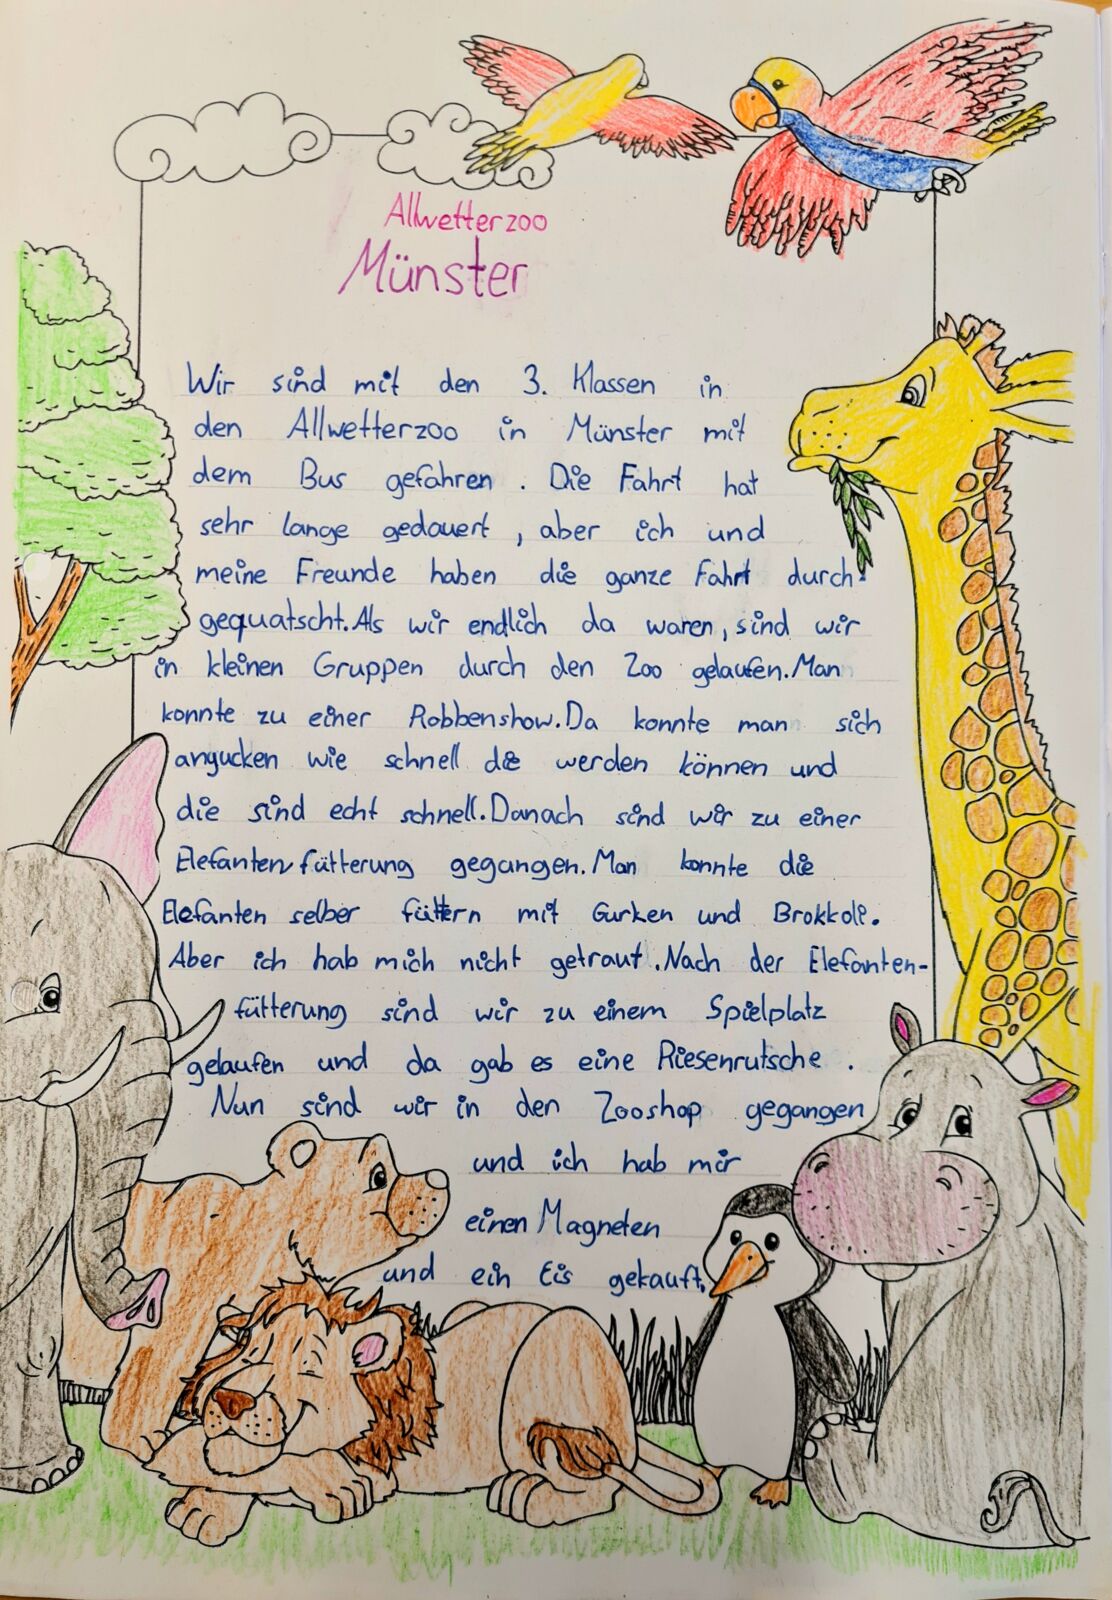 Allwetterzoo
Münster
Wir sind mit den 3. Klassen in
den Allwetterzoo in Münster mit
dem Bus gefahren. Die Fahrt hat
sehr lange gedauert, aber ich und
meine Freunde haben die ganze Fahrt durch-
gequatscht. Als wir endlich da waren, sind wir
in kleinen Gruppen durch den Zoo gelaufen. Man
konnte zu einer Robbenshow. Da konnte man sich
angucken wie schnell die werden können und
die sind echt schnell. Danach sind wir zu einer
Elefantenfütterung gegangen. Man konnte die
Elefanten selber füttern mit Gurken und Brokkoli.
Aber ich hab mich nicht getraut. Nach der Elefanten-
fütterung sind wir zu einem Spielplatz
gelaufen und da gab es eine Riesenrutsche.
Nun sind wir in den Zooshop gegangen
und ich hab mir
einen Magneten
und ein Eis gekauft.